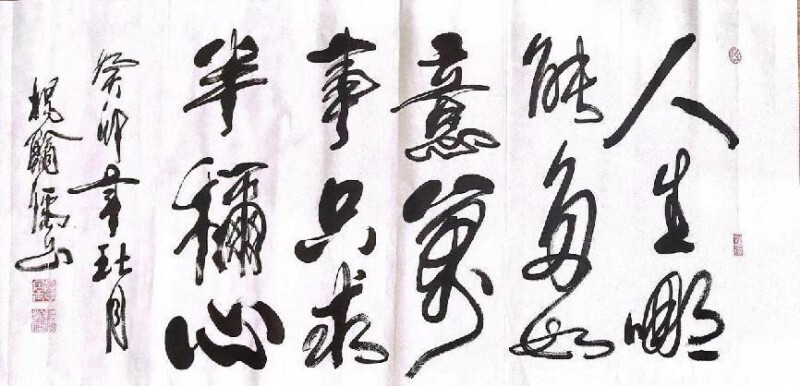 人生哪
能多如
意萬
事只求
半稱心
癸卯年秋月
楊翰儒书